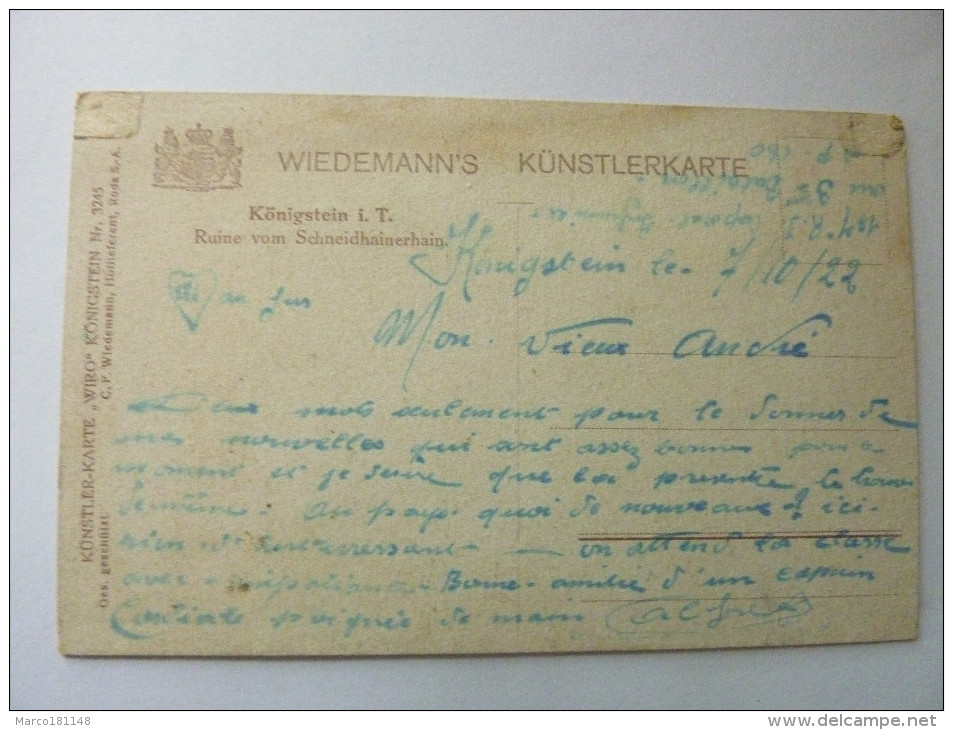 WIEDEMANN'S KÜNSTLERKARTE
Königstein i. T.
Ruine vom Schneidhainerhain.
KÜNSTLER-KARTE „WIRO“ KÖNIGSTEIN Nr. 3245
Ges. geschützt. C. F. Wiedemann, Hoflieferant, Roda S.-A.
au 3me Bataillon
S.P. 160
Königstein le 7/10/22
Mon Vieux André
Deux mots seulement pour te donner de
mes nouvelles qui sont assez bonnes pour
moment et je que la présente te trouve
de même. Au pays quoi de nouveaux? ici
rien d' on attend la classe
avec impatience. Bonne amitié d'un copain
Cordiale poignée de main Alfred
Marco181148
delcampe.net